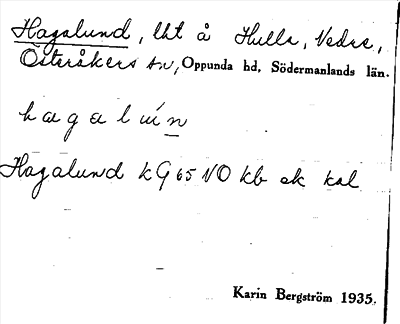 Hagalund, lht å Hulla, Nedre,
Österåkers sn, Oppunda hd, Södermanlands län.
hagalún
Hagalund kG65NO kb ek kal
Karin Bergström 1935.